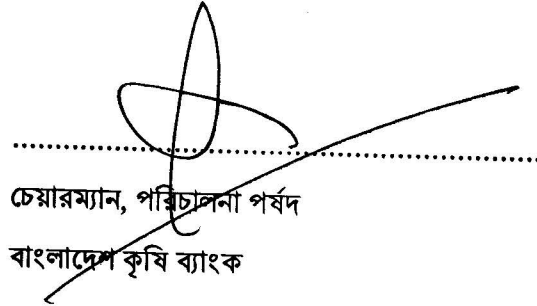 চেয়ারম্যান, পরিচালনা পর্ষদ
বাংলাদেশ কৃষি ব্যাংক